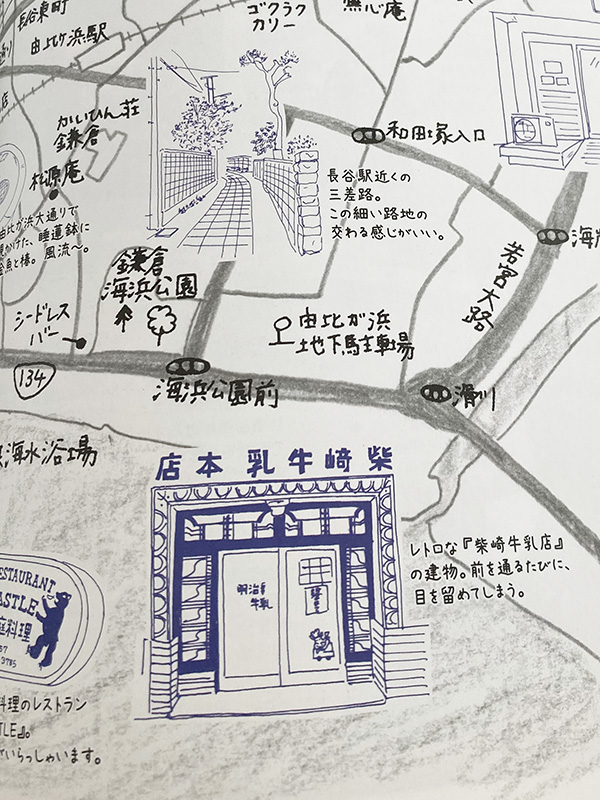 長谷東町
由比ヶ浜駅
ゴクラク
カリー
無心庵
かいひん荘
鎌倉
松原庵
和田塚入口
長谷駅近くの
三差路。
この細い路地の
交わる感じがいい。
由比が浜大通りで
見かけた、睡蓮鉢に
金魚と椿。風流〜。
鎌倉
海浜公園
若宮大路
シードレス
バー
由比が浜
地下駐車場
134
海浜公園前
滑川
海水浴場
店本 乳牛﨑柴
明治
牛乳
レトロな『柴崎牛乳店』
の建物。前を通るたびに、
目を留めてしまう。
RESTAURANT
ASTLE
庭料理
3785
料理のレストラン
TLE』。
でいらっしゃいます。